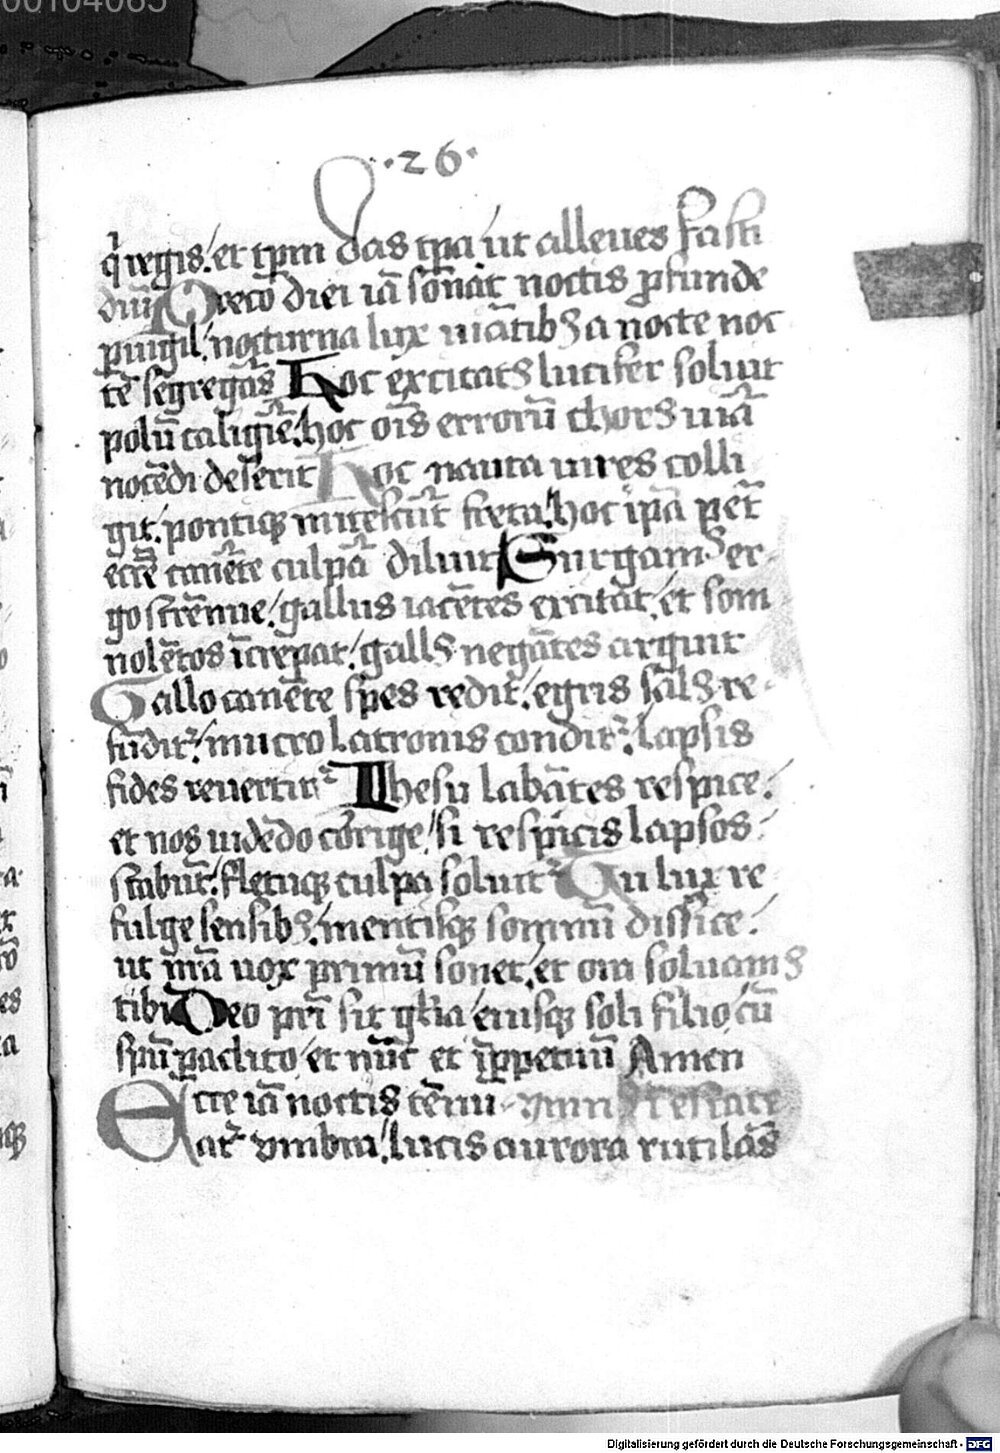 00104065
·26·
q̓ regis / et tp̄m das tp̄a / ut alleues fasti
diū Preco diei iā sonat / noctis ꝓfunde
puigil / nocturna lux uiātibꝫ a nocte noc
tē segregās Hoc excitatꝰ lucifer soluit
polū caligīe / hoc oīs erroꝝ chorꝰ uiā
nocēdi deserit Hoc nauta uires colli
git / pontiqꝫ mitescūt freta / hoc ip̄a pet̄
eccl̄ie canēte culpā diluit Surgamꝰ er
go strēnue / gallus iacētes excitat / et som
nolētos īcrepat / gallꝰ negātes arguit
Gallo canēte spes redit / egris salꝰ re
fūdit᷑ / mucro latronis condit᷑ / lapsis
fides reuertit᷑ Ihesu labātes respice /
et nos uidēdo corrige / si respicis lapsos
stabūt / fletuqꝫ culpa soluit᷑ Tu lux re
fulge sensibꝫ / mentisqꝫ somnū discute /
ut n̄ra uox primū sonet / et ora soluamꝰ
tibi Deo pr̄i sit gl̄ia / eiusqꝫ soli filio / cū
sp̄u paclito / et nūc et ī ꝑpetuū Amen
Ecce iā noctis tēnu
at᷑ vmbra / lucis aurora rutilās
Digitalisierung gefördert durch die Deutsche Forschungsgemeinschaft - DFG